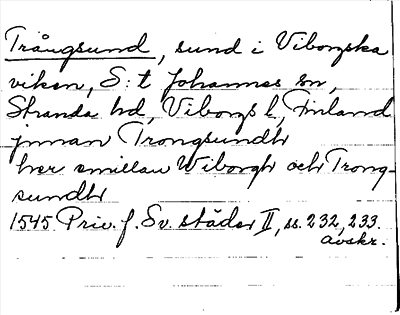 Trångsund, sund i Viborgska
viken, S:t Johannes sn,
Stranda hd, Viborgs l, Finland
jnnan Trongsundh
her emillan Wiborgh och Trong-
sundh
1545 Priv. f. Sv. städer II, ss. 232, 233.
avskr.